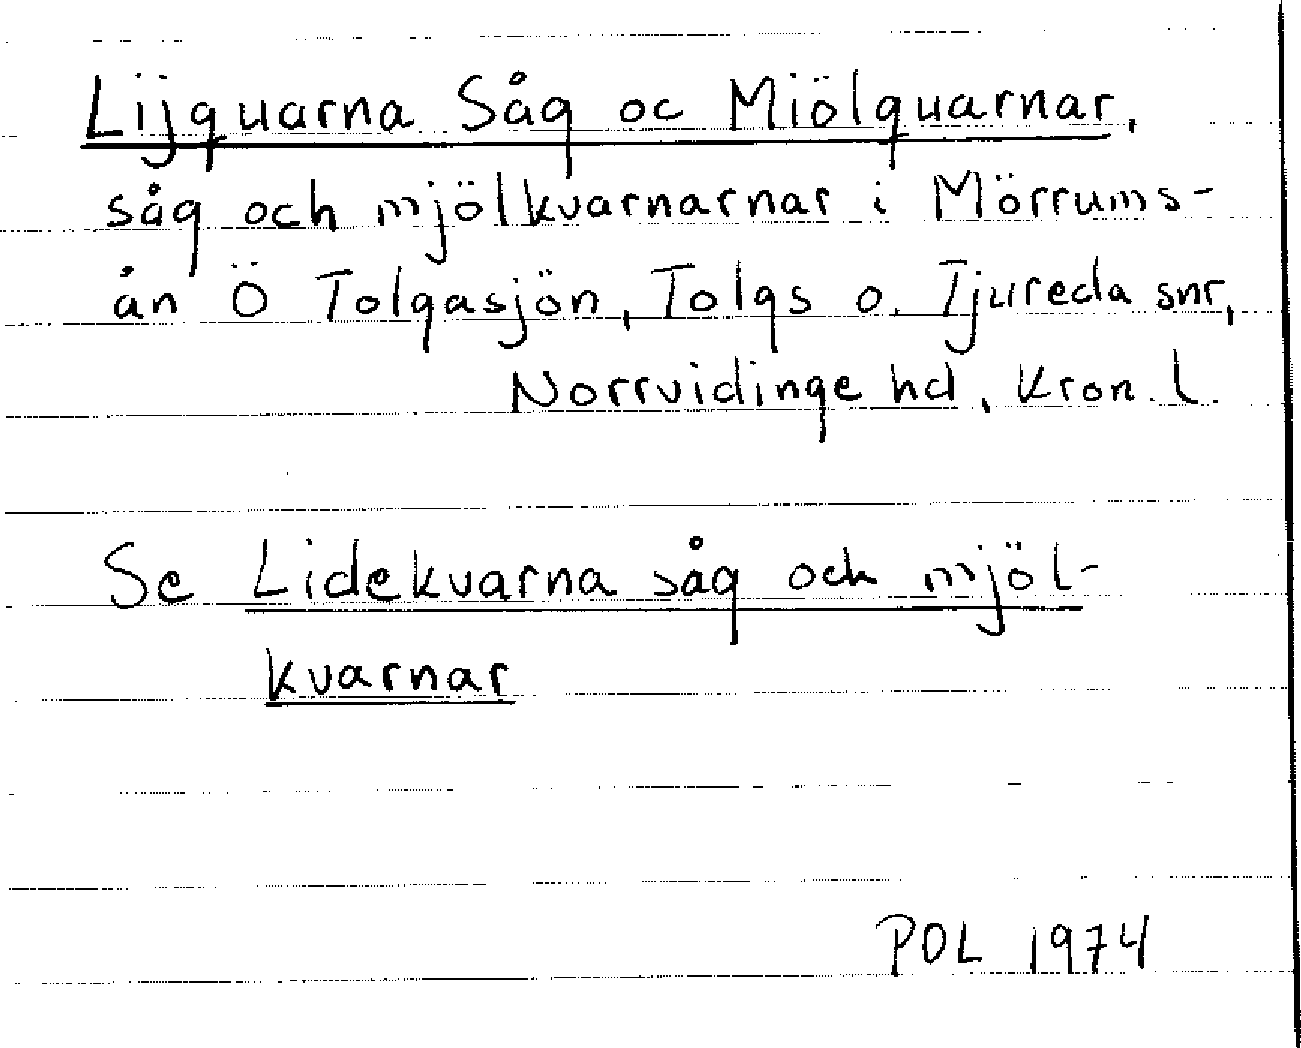 Lijquarna Såg oc Miölquarnar,
såg och mjölkvarnarnar i Mörrums-
ån Ö Tolgasjön, Tolgs o. Tjureda snr,
Norrvidinge hd, Kron. l.
Se Lidekvarna såg och mjöl-
kvarnar
POL 1974